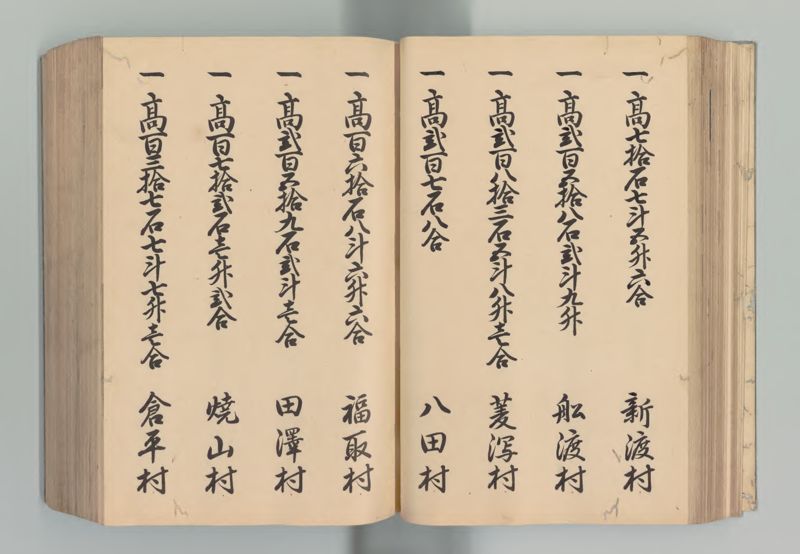 一 高七拾石七斗五升六合 新渡村
一 高弐百五拾八石弐斗九升 舩渡村
一 高弐百八拾三石五斗八升壱合 菱潟村
一 高弐百七石八合 八田村
一 高百六拾石八斗六升六合 福取村
一 高弐百五拾九石弐斗壱合 田澤村
一 高百七拾弐石壱升弐合 焼山村
一 高百三拾七石七斗七升壱合 倉平村